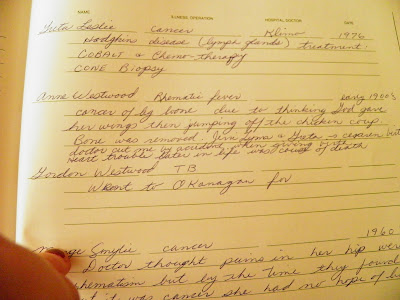 NAME ILLNESS OPERATION HOSPITAL DOCTOR DATE
Greta Leslie cancer Klimo 1976
Hodgkins disease (lymph glands) treatment:
COBALT & Chemo-therapy
CONE Biopsy
Anne Westwood Rhematic fever early 1900s
cancer of leg bone due to thinking God gave
her wings then jumping off the chicken coop.
Bone was removed. Jim Lyma & Greta is ceparen but
doctor cut me by accident when giving birth
Heart trouble later in life was cause of death
Gordon Westwood TB
Went to OKanagan for
Smylie cancer 1960
Doctor thought pains in her hip were
rhematism but by the Time they found
it was cancer she had no hope of